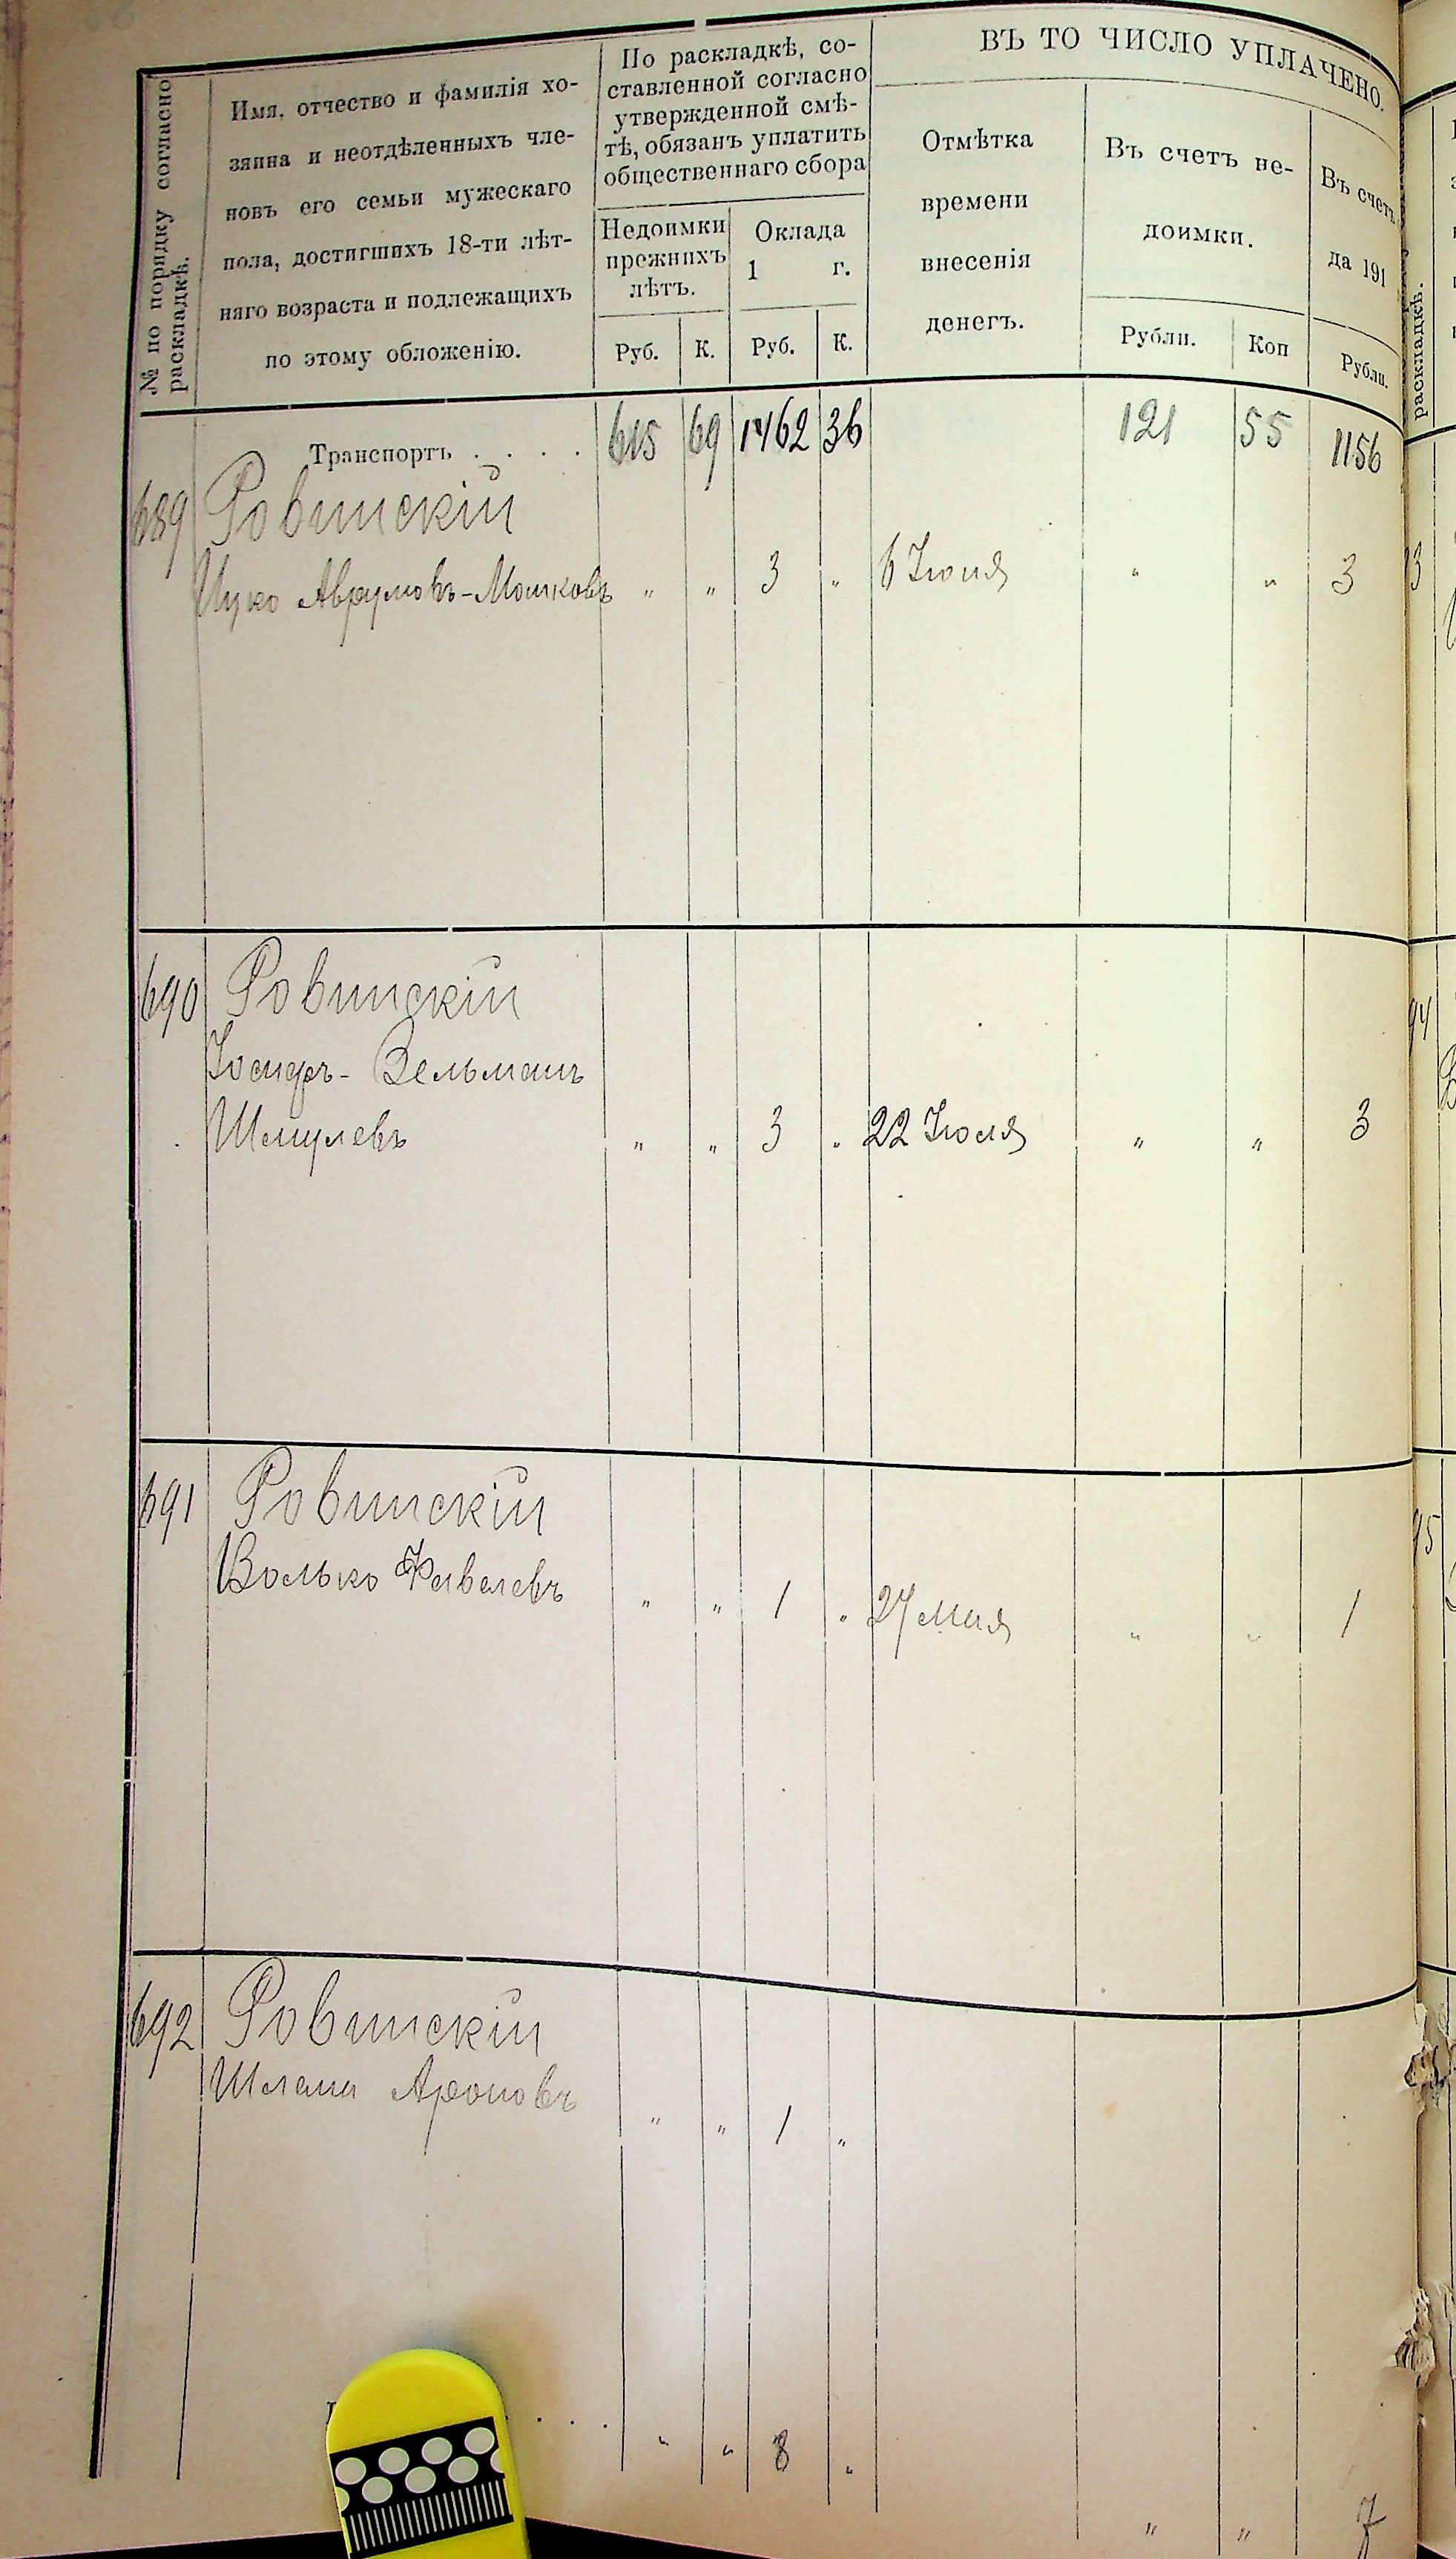 № по порядку согласно
раскладкѣ.
Имя, отчество и фамилія хо-
зяина и неотдѣленныхъ чле-
новъ его семьи мужескаго
пола, достигшихъ 18-ти лѣт-
няго возраста и подлежащихъ
по этому обложенію.
По раскладкѣ, со-
ставленной согласно
утвержденной смѣ-
тѣ, обязанъ уплатить
общественнаго сбора
Недоимки
прежнихъ
лѣтъ.
Оклада
1 г.
Руб. К. Руб. К.
ВЪ ТО ЧИСЛО УПЛАЧЕНО.
Отмѣтка
времени
внесенія
денегъ.
Въ счетъ не-
доимки.
Рубли. Коп
Въ счетъ
да 191
Рубли.
раскладкѣ.
Транспортъ . . . . 615 69 1462 36 121 55 1156
689 Ровинскій
Ицко Аврумовъ-Мошковъ " " 3 " 6 Іюня " " 3
690 Ровинскій
Іосифъ-Зельманъ
Шмулевъ " " 3 " 22 Іюля " " 3
691 Ровинскій
Волько Файвелевъ " " 1 " 27 Мая " " 1
692 Ровинскій
Шлема Ароновъ " " 1 "
. . . " " 8 " " " 7